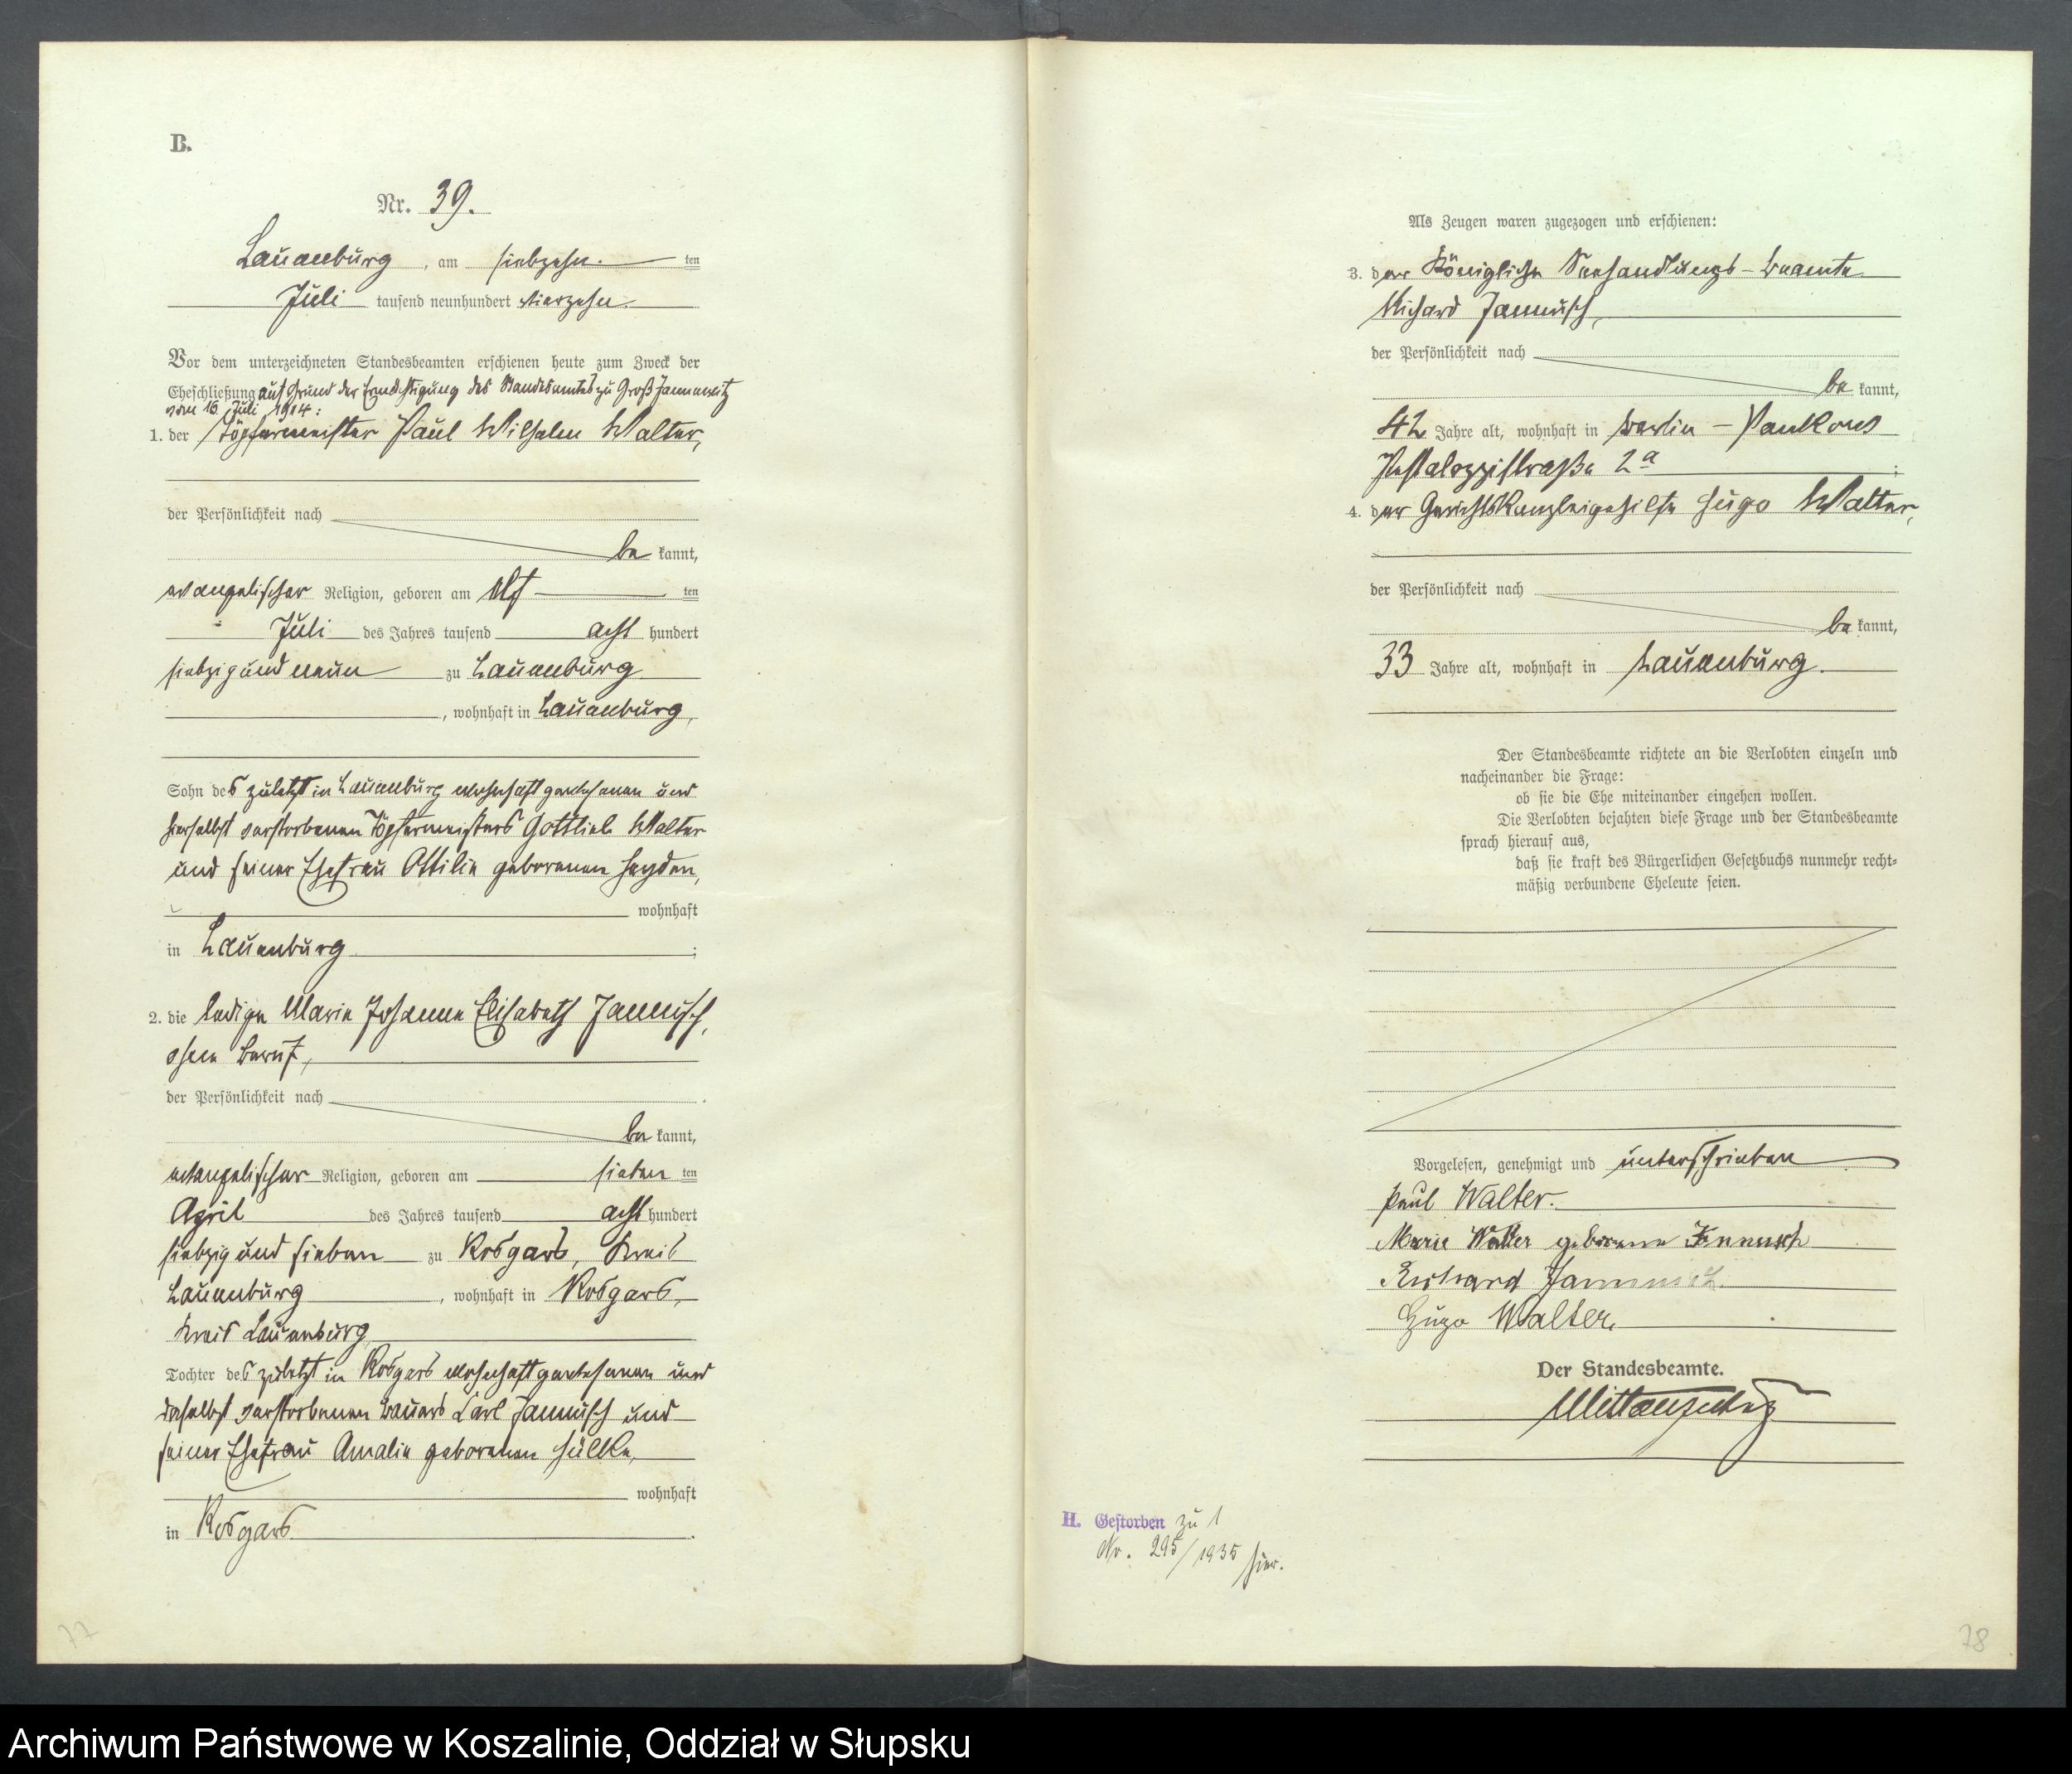 B.
Nr. 39.
Lauenburg, am siebzehn ten
Juli tausend neunhundert vierzehn.
Vor dem unterzeichneten Standesbeamten erschienen heute zum Zweck der
Eheschließung auf Grund der Ermächtigung des Standesamtes zu Groß Jannewitz
vom 16 Juli 1914:
1. der Töpfermeister Paul Wilhelm Walter,
der Persönlichkeit nach
be kannt,
evangelischer Religion, geboren am elf ten
Juli des Jahres tausend acht hundert
siebzig und neun zu Lauenburg
, wohnhaft in Lauenburg,
Sohn des zuletzt in Lauenburg wohnhaft gewesenen und
hierselbst verstorbenen Töpfermeisters Gottlieb Walter
und seiner Ehefrau Ottilie geborenen Heyden,
wohnhaft
in Lauenburg ;
2. die ledige Marie Johanna Elisabeth Jannusch,
ohne Beruf,
der Persönlichkeit nach
be kannt,
evangelischer Religion, geboren am sieben ten
April des Jahres tausend acht hundert
siebzig und sieben zu Rosgars, Kreis
Lauenburg , wohnhaft in Rosgars,
Kreis Lauenburg
Tochter des zuletzt in Rosgars wohnhaft gewesenen und
daselbst verstorbenen Bauers Carl Jannusch und
seiner Ehefrau Amalie geborenen Hülke,
wohnhaft
in Rosgars .
77
Als Zeugen waren zugezogen und erschienen:
3. der Königliche Seehandlungs-Beamte
Richard Jannusch,
der Persönlichkeit nach
be kannt,
42 Jahre alt, wohnhaft in Berlin - Pankow
Pestalozzistraße 2a ;
4. der Gerichtskanzleigehilfe Hugo Walter,
der Persönlichkeit nach
be kannt,
33 Jahre alt, wohnhaft in Lauenburg.
Der Standesbeamte richtete an die Verlobten einzeln und
nacheinander die Frage:
ob sie die Ehe miteinander eingehen wollen.
Die Verlobten bejahten diese Frage und der Standesbeamte
sprach hierauf aus,
daß sie kraft des Bürgerlichen Gesetzbuchs nunmehr recht-
mäßig verbundene Eheleute seien.
Vorgelesen, genehmigt und unterschrieben
Paul Walter.
Marie Walter geborene Jannusch
Richard Jannusch.
Hugo Walter.
Der Standesbeamte.
H. Gestorben zu 1
Nr. 295/1935 hier.
78
Archiwum Państwowe w Koszalinie, Oddział w Słupsku